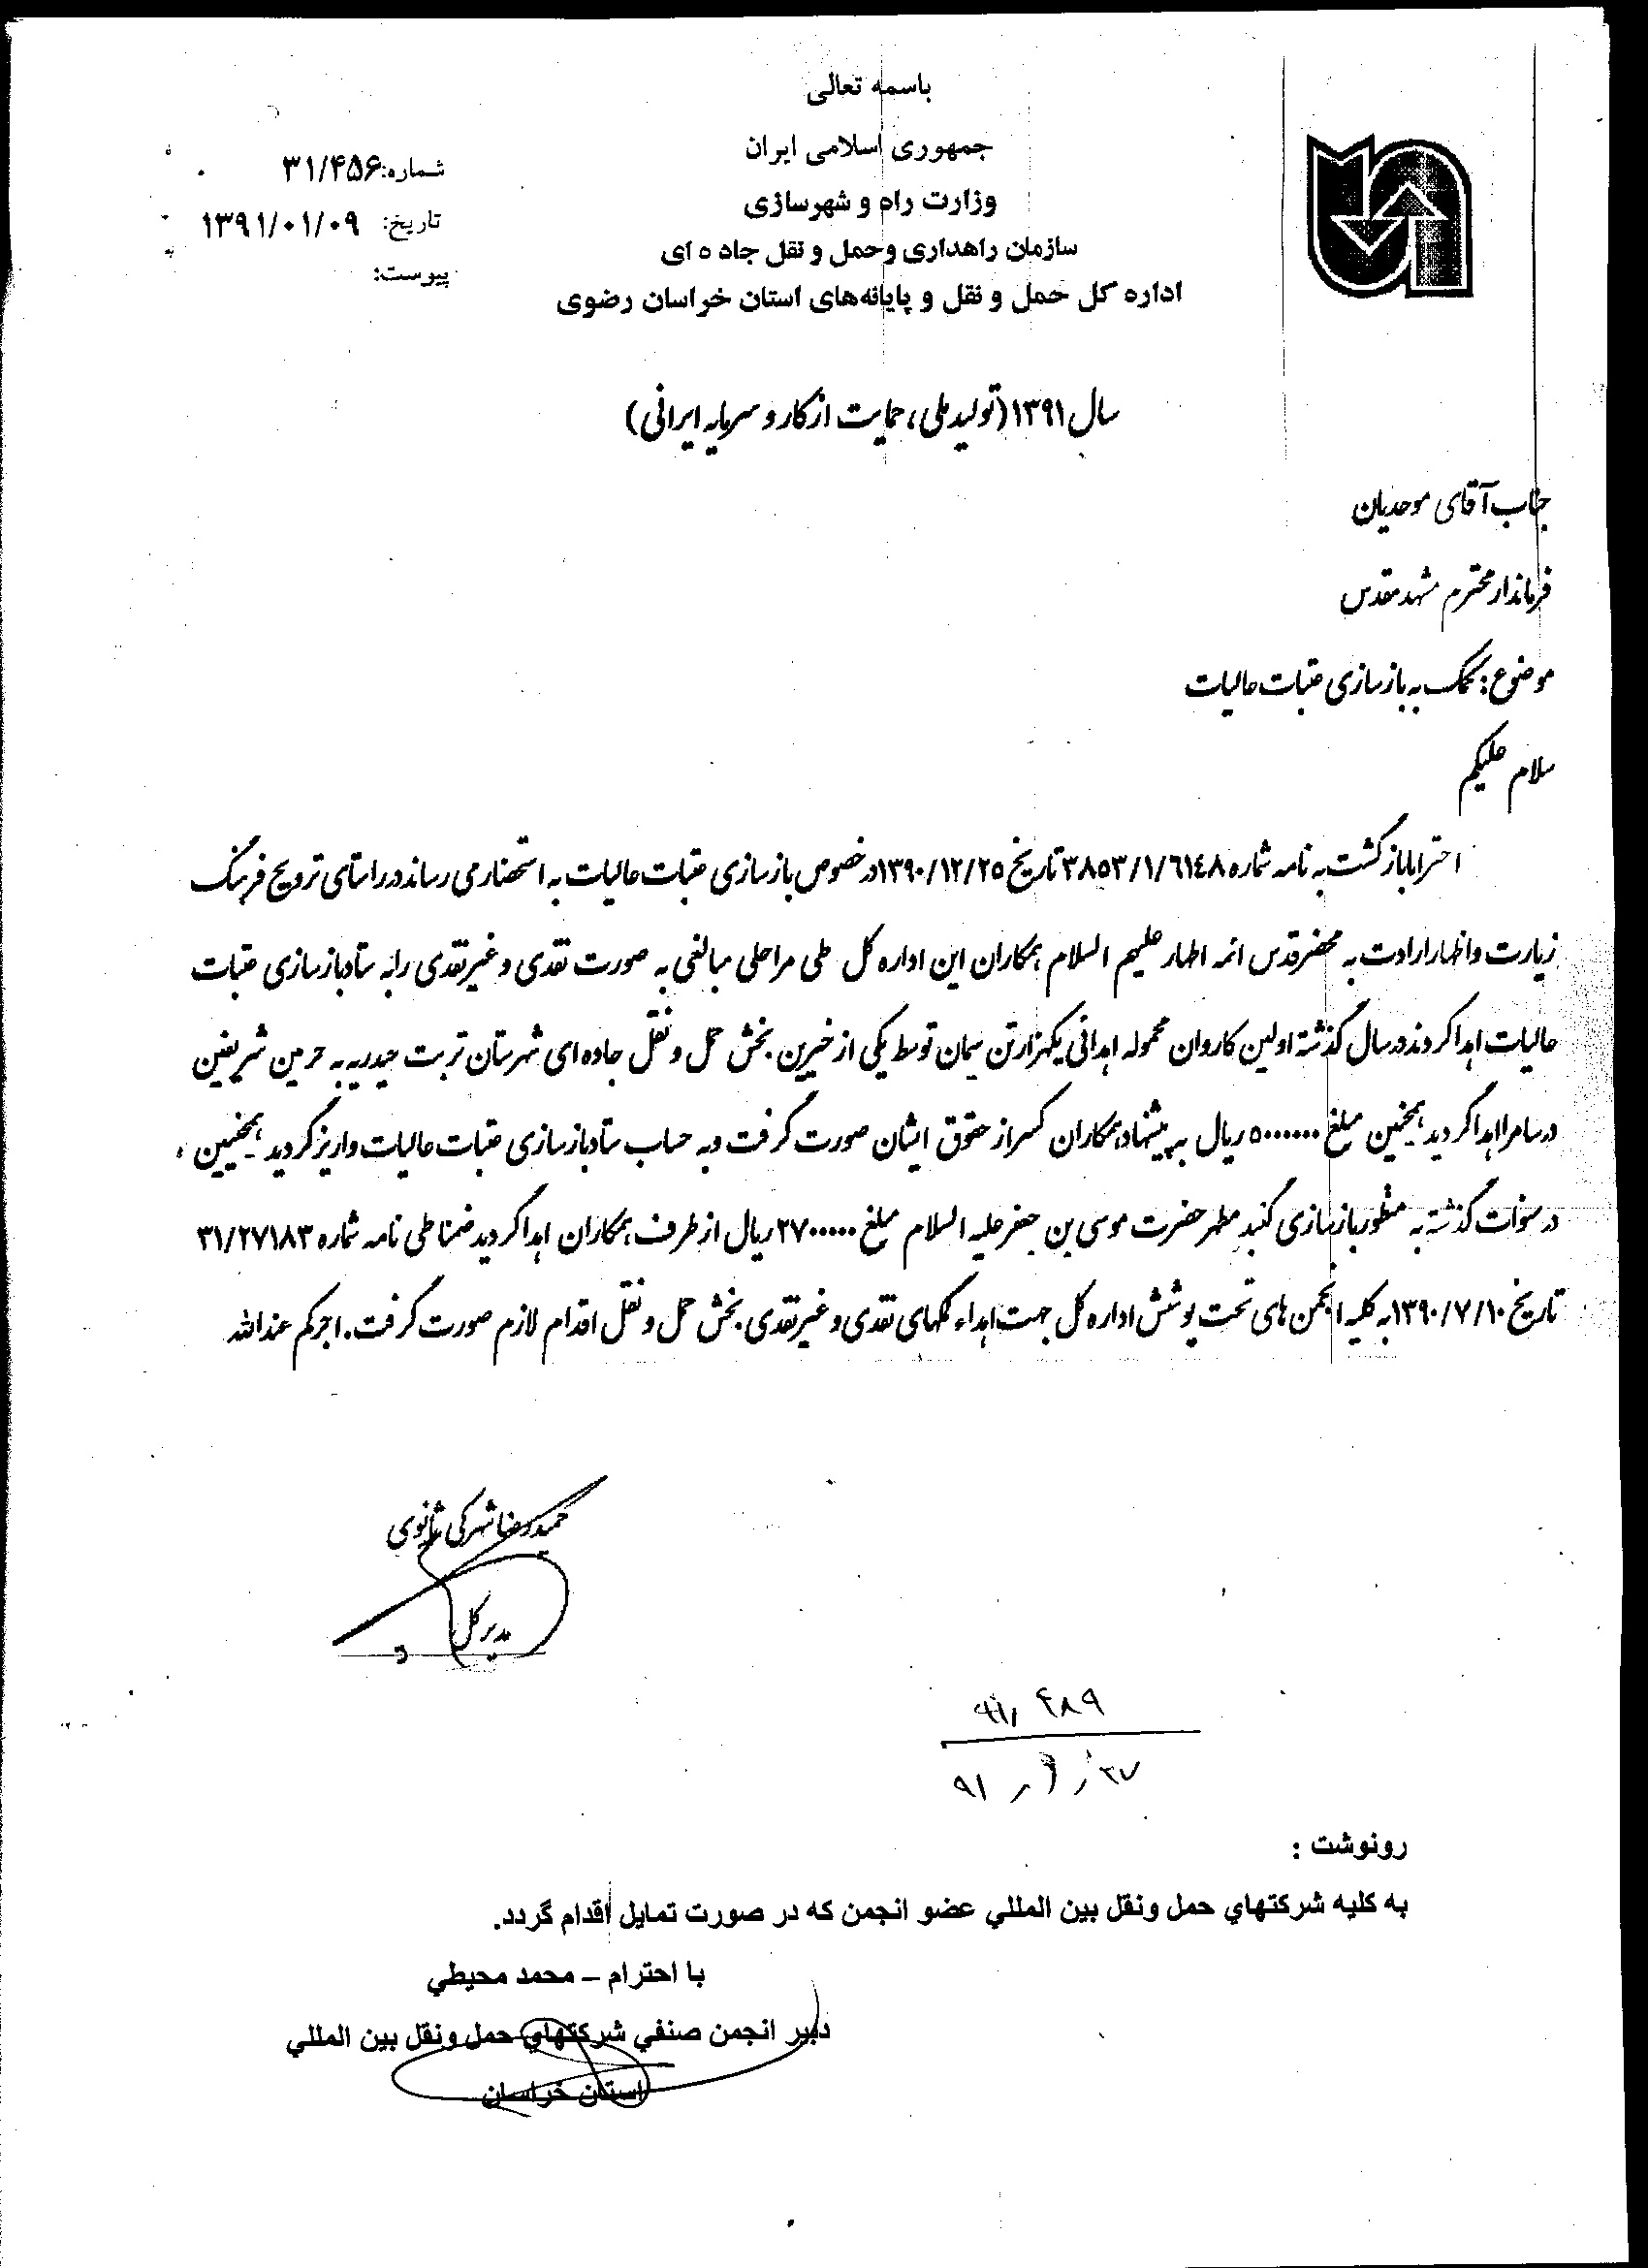 باسمه تعالی
جمهوری اسلامی ایران
وزارت راه و شهرسازی
سازمان راهداری وحمل و نقل جاده ای
اداره کل حمل و نقل و پایانه‌های استان خراسان رضوی
شماره: ۳۱/۴۵۶
تاریخ: ۱۳۹۱/۰۱/۰۹
پیوست:
سال ۱۳۹۱(تولید ملی، حمایت از کار و سرمایه ایرانی)
جناب آقای موحدیان
فرماندار محترم مشهد مقدس
موضوع: کمک به بازسازی عتبات عالیات
سلام علیکم
احتراما بازگشت به نامه شماره ۳۸۵۳/۱/۶۱۴۸ تاریخ ۱۳۹۰/۱۲/۲۵ در خصوص بازسازی عتبات عالیات به استحضار می رساند در راستای ترویج فرهنگ
زیارت و اظهار ارادت به محضر قدس ائمه اطهار علیهم السلام همکاران این اداره کل طی مراحلی مبالغی به صورت نقدی و غیر نقدی را به ستاد بازسازی عتبات
عالیات اهدا کردند در سال گذشته اولین کاروان محموله اهدائی یکهزار تن سیمان توسط یکی از خیرین بخش حمل و نقل جاده ای شهرستان تربت حیدریه به حرمین شریفین
در سامرا اهدا گردید همچنین مبلغ ۵۰۰۰۰۰۰۰ ریال به پیشنهاد همکاران کسر از حقوق ایشان صورت گرفت و به حساب ستاد بازسازی عتبات عالیات واریز گردید همچنین
در سنوات گذشته به منظور بازسازی گنبد مطهر حضرت موسی بن جعفر علیه السلام مبلغ ۲۷۰۰۰۰۰۰ ریال از طرف همکاران اهدا گردید ضمنا طی نامه شماره ۳۱/۲۷۱۸۳
تاریخ ۱۳۹۰/۷/۱۰ به کلیه انجمن های تحت پوشش اداره کل جهت اهداء کمکهای نقدی و غیر نقدی بخش حمل و نقل اقدام لازم صورت گرفت. اجرکم عندالله
حمید رضا شهرکی ثانوی
مدیر کل
۹۱٫ ۴۸۹
۹۱ ٫ ۱ ٫ ۲۷
رونوشت :
به كليه شركتهاي حمل ونقل بين المللي عضو انجمن كه در صورت تمايل اقدام گردد.
با احترام – محمد محيطي
دبير انجمن صنفي شركتهاي حمل ونقل بين المللي
استان خراسان